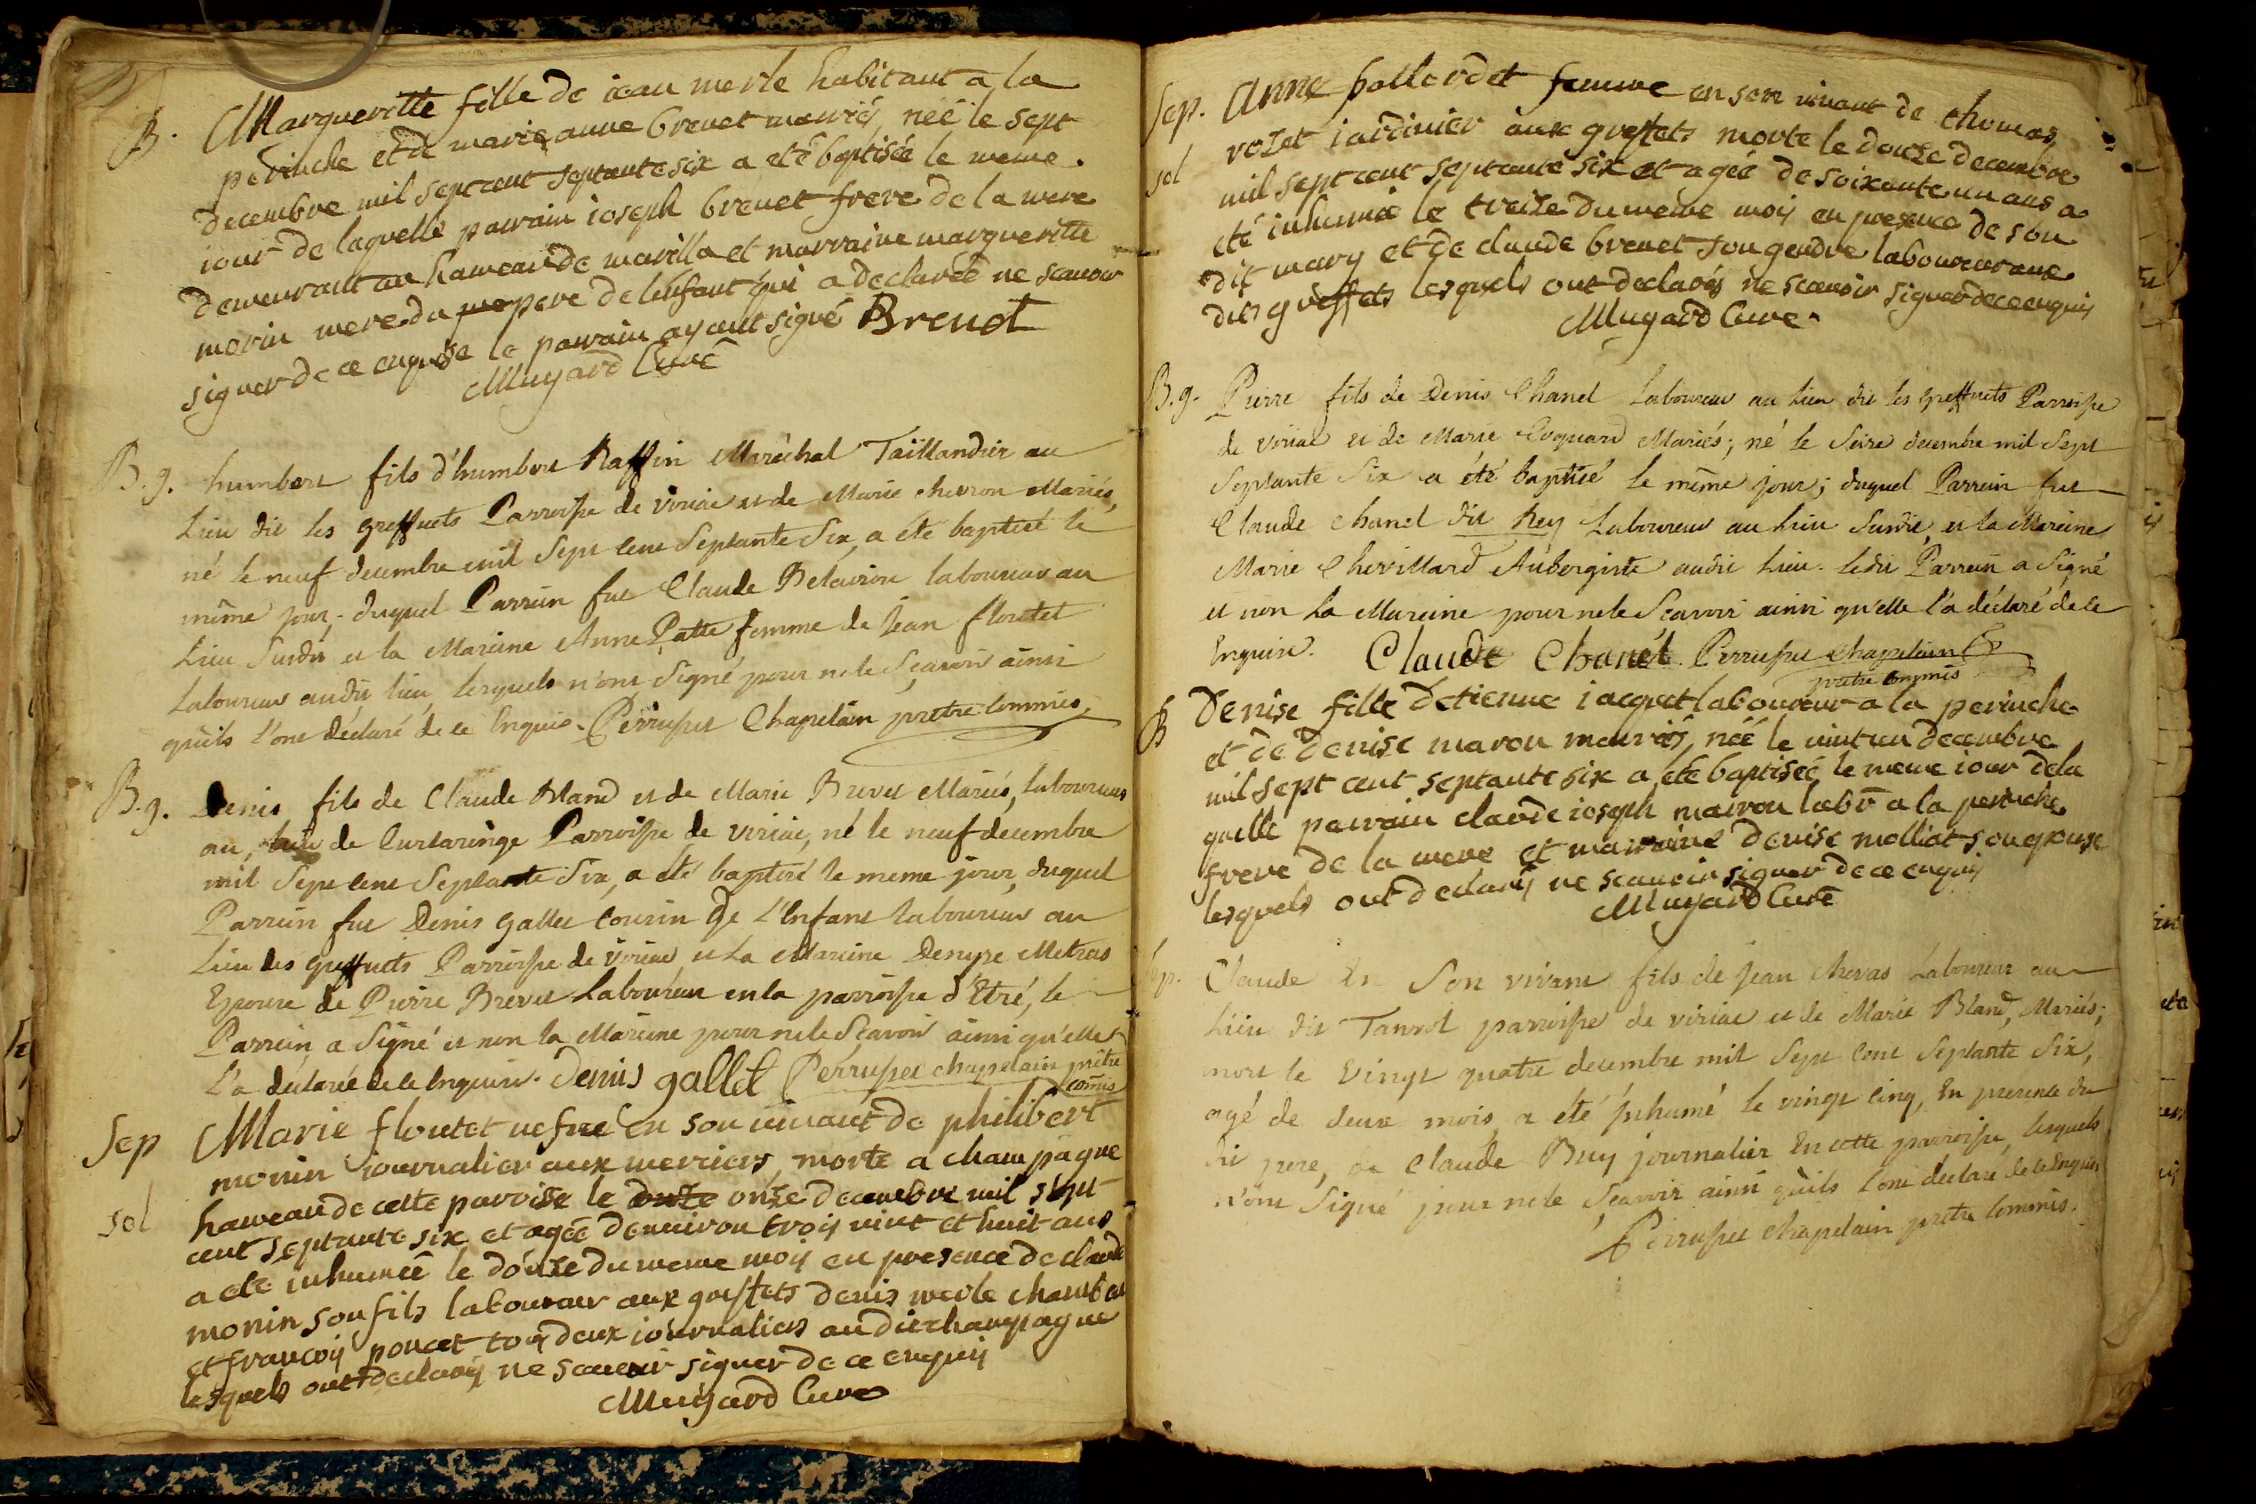 B. Margueritte fille de iean merle habitant a la
peruche et de marie anne brevet mariés, néé le sept
decembre mil sept cent septante six a eté baptisée le meme
iour de laquelle parrain ioseph brevet frere de la mere
demeurant au hameau de marilla et marraine margueritte
morin mere du pere de lenfant qui a declaréé ne scavoir
signer de ce enquise le parrain ayant signé Brevet
Mugard Curé
B. g. humbert fils d'humbert Raffin Maréchal Taillandier au
Lieu dit les greffets Parroisse de viriac et de Marie chevron Mariés,
né le neuf decembre mil Sept Cent Septante Six, a été baptisé le
même jour; duquel Parrein fut Claude Delavion laboureur au
Lieu Susdit et la Mareine Anne Patte femme de Jean floutet
Laboureur audit lieu, lesquels n'ont Signé pour ne le Sçavoir ainsi
qu'ils l'ont déclaré de ce Enquis. Perruset Chapelain prêtre Commis,
B. g. Denis fils de Claude Bland et de Marie Brevet Mariés, laboureur
au lieu de Curtaringe Parroisse de viriac, né le neuf decembre
mil Sept Cent Septante Six, a été baptisé le meme jour, duquel
Parrein fut Denis gallet Cousin de L'Enfant Laboureur au
Lieu des greffets Parroisse de viriac et La Mareine Denyse Metras
Epouse de Pierre Brevet Laboureur en la parroisse d'Etré, le
Parrein a Signé et non la Mareine pour ne le Scavoir ainsi qu'elle
l'a déclarée de ce Enquise. denis gallet Perruset chapelain prêtre
comis
Sep Marie floutet vefve en son vivant de philibert
monin iournalier aux merciers, morte a champagne
sol hameau de cette paroisse le onze decembre mil sept
cent septante six et agéé denviron trois vint et huit ans
a eté inhumée le douze du meme mois en presence de claude
monin son fils laboureur aux greffets denis merle
et francois poncet tous deux iournaliers au dit champagne
lesquels ont declarés ne scavoir signer de ce enquis
Mugard Curé
Sep. Anne pollerdet femme en son vivant de thomas
sol rozet iardinier aux greffets morte le douze decembre
mil sept cent septante six et agéé de soixante un ans a
eté inhumée le treize du meme mois en presence de son
dit mary et de claude brevet son gendre laboureur aux
dits greffets lesquels ont declarés ne scavoir signer de ce enquis
Mugard Curé.
B. g. Pierre fils de Denis Chanel Laboureur au Lieu dit les greffets Parroisse
de viriac et de Marie Coquard Mariés; né le Seize decembre mil Sept
Septante Six a été baptisé le même jour; duquel Parrein fut
Claude Chanel dit Rey Laboureur au Lieu Susdit, et la Mareine
Marie Chevillard Aubergiste audit Lieu. Ledit Parrein a Signé
et non La Mareine pour ne le Scavoir ainsi qu'elle l'a déclaré de ce
Enquise. Claude Chanel. Perruset Chapelain
prêtre Commis
B Denise fille d'etienne iacquet laboureur a la peruche
et de denise maron mariés, néé le vint un decembre
mil sept cent septante six a eté baptiséé le meme iour de la
quelle parrain claude ioseph mairon lab a la peruche
frere de la mere et marraine denise molliat son epouse
lesquels ont declarés ne scavoir signer de ce enquis
Mugard Curé
Claude En Son vivant fils de Jean chevas Laboureur au
Lieu dit Tannol parroisse de viriac et de Marie Bland, Mariés;
mort le Vingt quatre decembre mil Sept Cent Septante Six,
agé de deux mois a été inhumé le vingt Cinq, En presence du
dit pere, et Claude Buy journalier En cette parroisse, lesquels
n'ont Signé pour ne le Sçavoir ainsi qu'ils l'ont déclaré de ce Enquis
Perruset chapelain prêtre Commis.